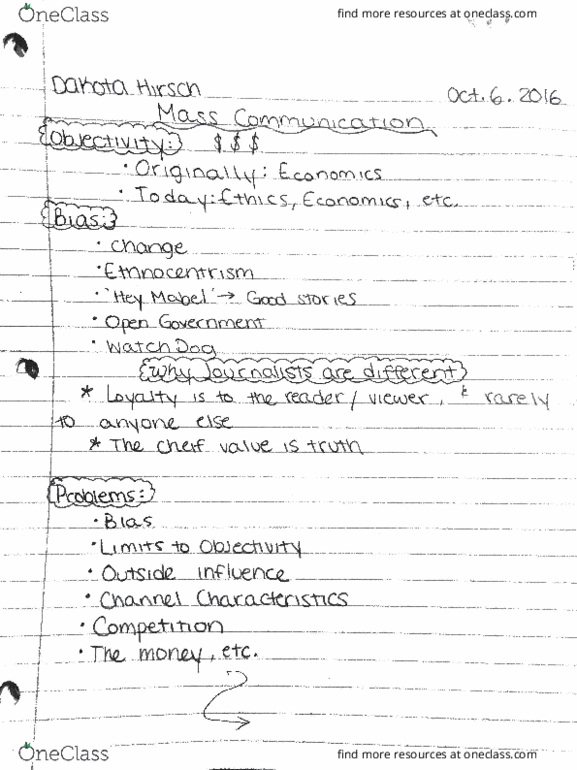 OneClass
find more resources at oneclass.com
Dakota Hirsch
Oct. 6. 2016
Mass Communication
Objectivity: $ $ $
• Originally: Economics
• Today: Ethics, Economics, etc.
Bias:
• change
• Ethnocentrism
• "Hey Mabel" → Good stories
• Open Government
• WatchDog
Why Journalists are different
* Loyalty is to the reader / viewer, & rarely
to anyone else
* The cheif value is truth
Problems:
• Bias
• Limits to Objectivity
• Outside influence
• Channel Characteristics
• Competition
• The money, etc.
OneClass
find more resources at oneclass.com